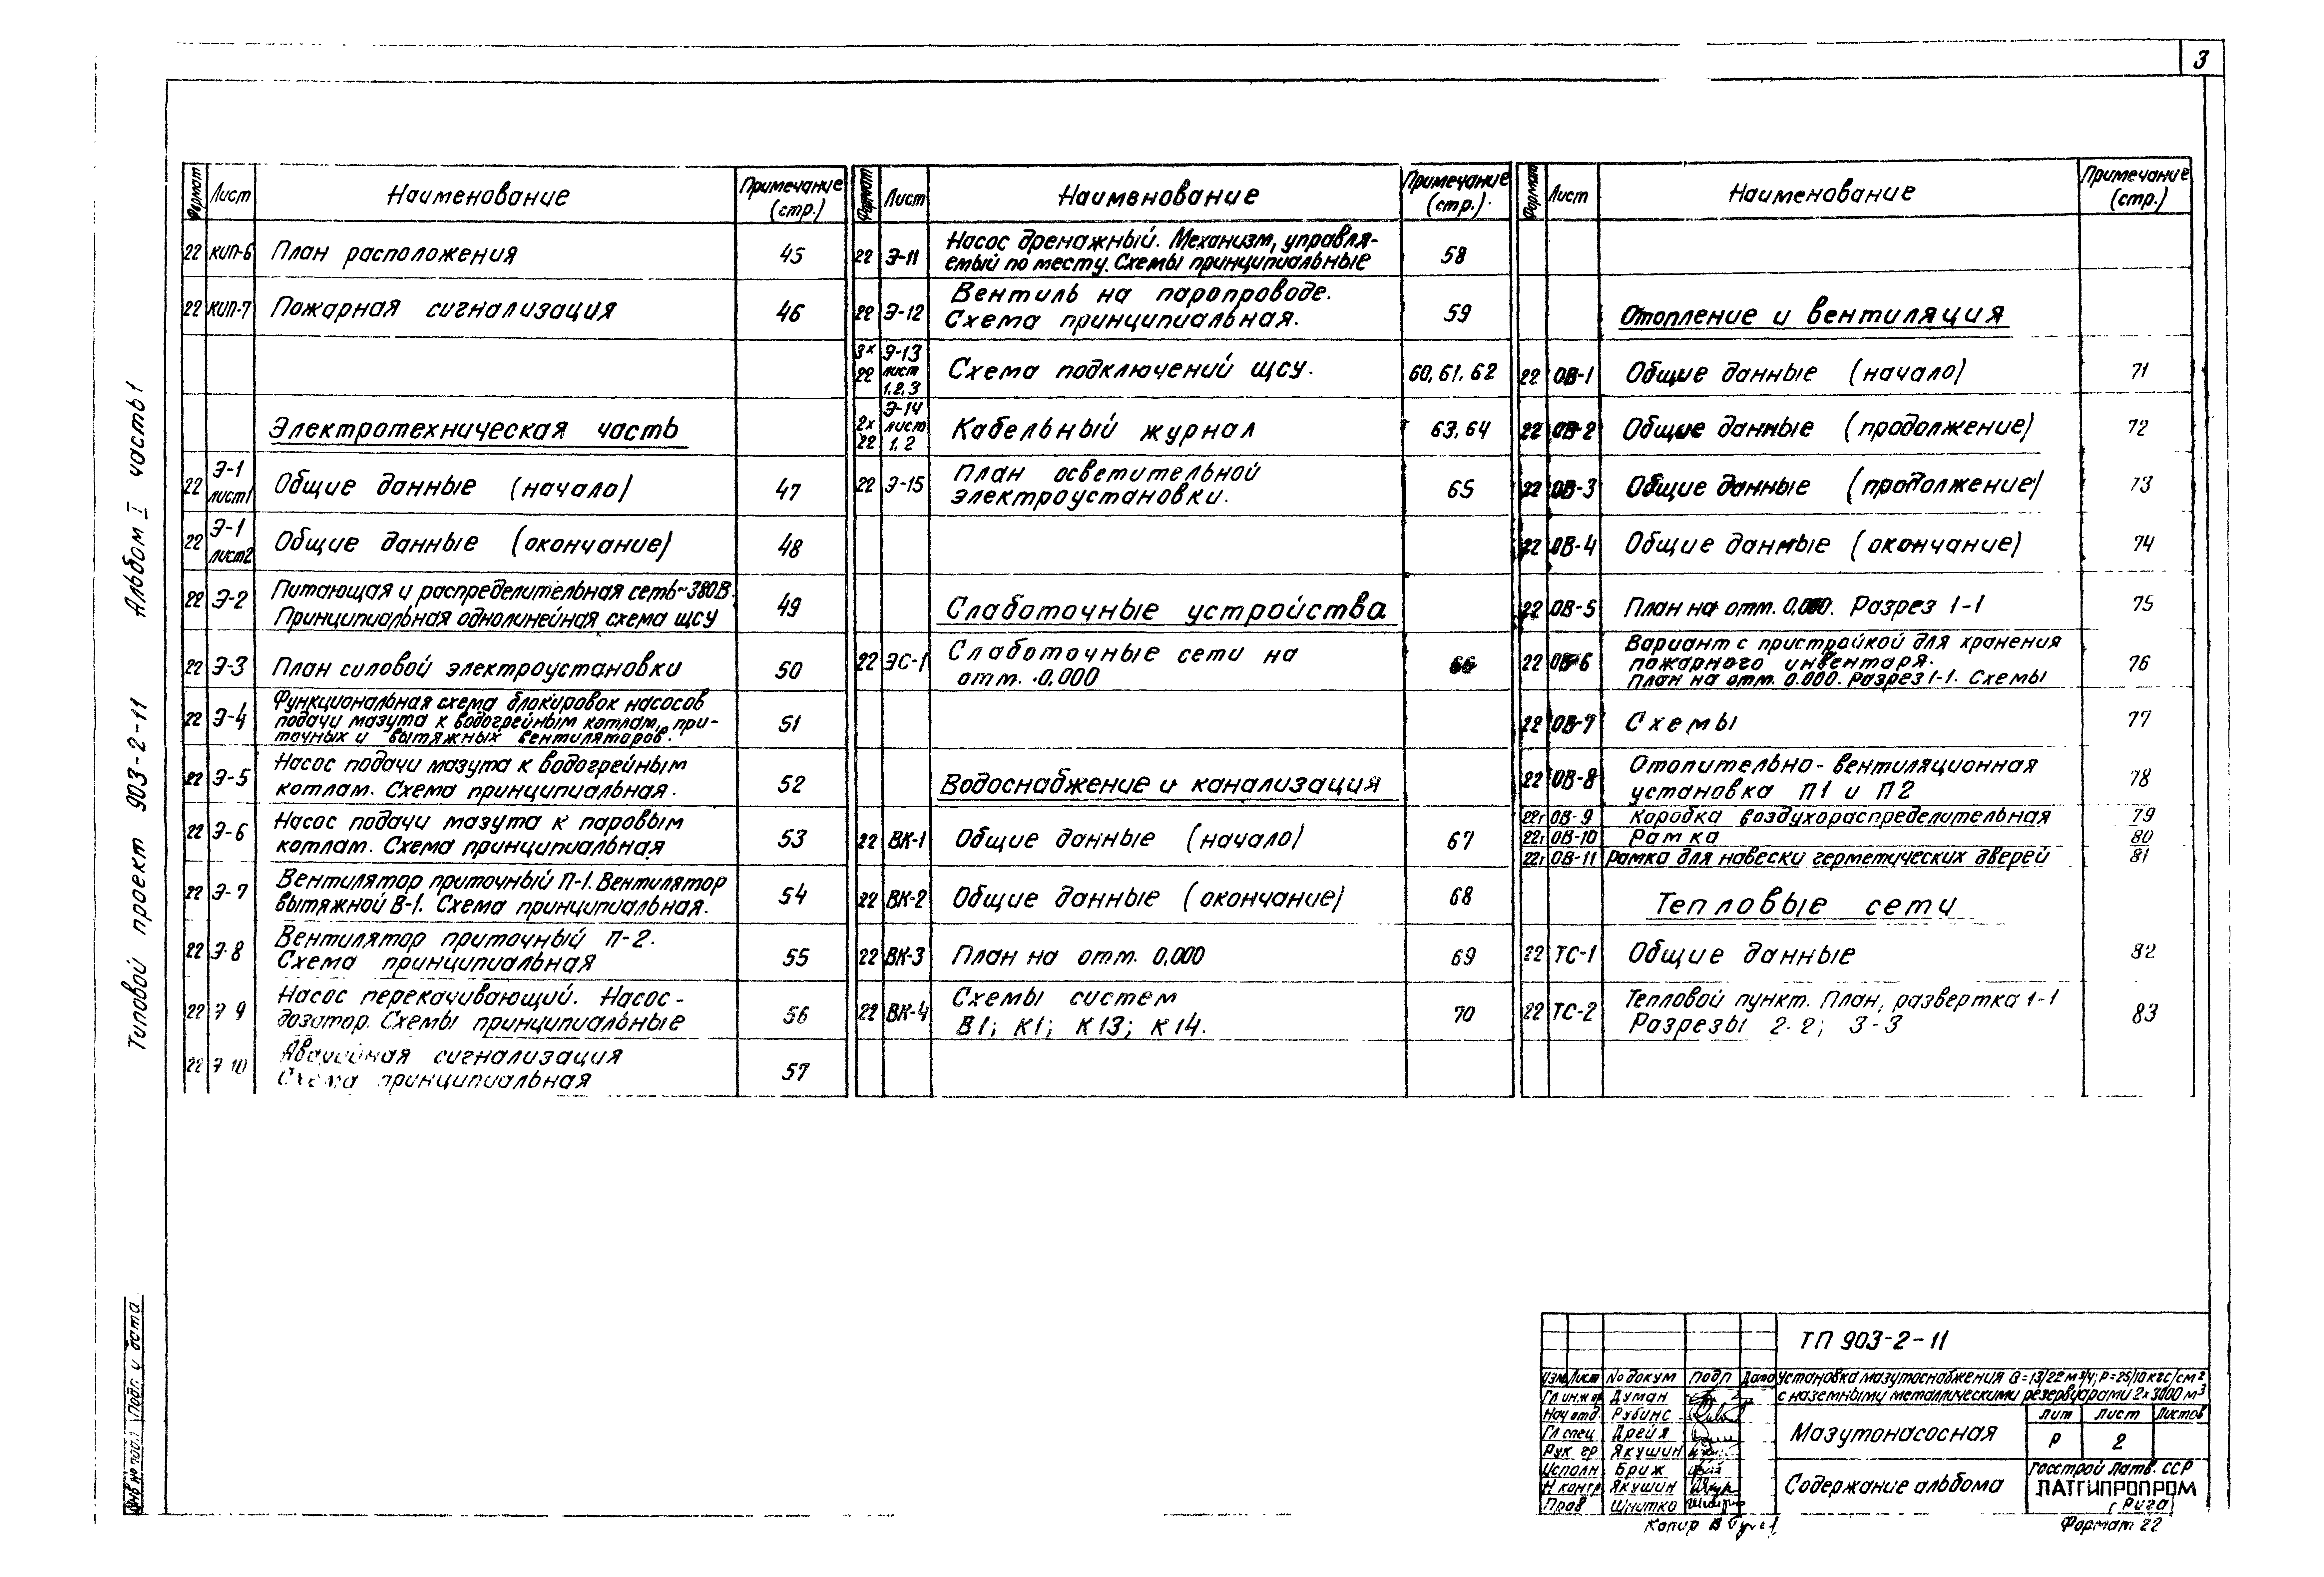 3
Типовой проект 903-2-11 Альбом I часть 1
Формат Лист Наименование Примечание (стр.)
22 КИП-6 План расположения 45
22 КИП-7 Пожарная сигнализация 46
Электротехническая часть
22 Э-1 лист1 Общие данные (начало) 47
22 Э-1 лист2 Общие данные (окончание) 48
22 Э-2 Питающая и распределительная сеть ~380В.
Принципиальная однолинейная схема щсу 49
22 Э-3 План силовой электроустановки 50
22 Э-4 Функциональная схема блокировок насосов
подачи мазута к водогрейным котлам, при-
точных и вытяжных вентиляторов. 51
22 Э-5 Насос подачи мазута к водогрейным
котлам. Схема принципиальная. 52
22 Э-6 Насос подачи мазута к паровым
котлам. Схема принципиальная 53
22 Э-7 Вентилятор приточный П-1. Вентилятор
вытяжной В-1. Схема принципиальная. 54
22 Э-8 Вентилятор приточный П-2.
Схема принципиальная 55
22 Э 9 Насос перекачивающий. Насос-
дозатор. Схемы принципиальные 56
22 Э 10 Аварийная сигнализация
Схема принципиальная 57
Формат Лист Наименование Примечание (стр.)
22 Э-11 Насос дренажный. Механизм, управля-
емый по месту. Схемы принципиальные 58
22 Э-12 Вентиль на паропроводе.
Схема принципиальная. 59
3х 22 Э-13 лист 1,2,3 Схема подключений щсу. 60, 61, 62
2х 22 Э-14 лист 1, 2 Кабельный журнал 63, 64
22 Э-15 План осветительной
электроустановки. 65
Слаботочные устройства
22 ЭС-1 Слаботочные сети на
отм. 0,000 66
Водоснабжение и канализация
22 ВК-1 Общие данные (начало) 67
22 ВК-2 Общие данные (окончание) 68
22 ВК-3 План на отм. 0,000 69
22 ВК-4 Схемы систем
В1; К1; К13; К14. 70
Формат Лист Наименование Примечание (стр.)
Отопление и вентиляция
22 ОВ-1 Общие данные (начало) 71
22 ОВ-2 Общие данные (продолжение) 72
22 ОВ-3 Общие данные (продолжение) 73
22 ОВ-4 Общие данные (окончание) 74
22 ОВ-5 План на отм. 0,000. Разрез 1-1 75
22 ОВ-6 Вариант с пристройкой для хранения
пожарного инвентаря.
План на отм. 0.000. Разрез 1-1. Схемы 76
22 ОВ-7 Схемы 77
22 ОВ-8 Отопительно-вентиляционная
установка П1 и П2 78
22г ОВ-9 Коробка воздухораспределительная 79
22г ОВ-10 Рамка 80
22г ОВ-11 Рамка для навески герметических дверей 81
Тепловые сети
22 ТС-1 Общие данные 82
22 ТС-2 Тепловой пункт. План, развертка 1-1
Разрезы 2-2; 3-3 83
Инв № подл Подп. и дата
ТП 903-2-11
Изм Лист № докум Подп Дата
Установка мазутоснабжения Q=13/22 м³/ч; Р=25/10 кгс/см²
с наземными металлическими резервуарами 2х3000 м³
Гл инж пр Думан
Нач отд. Рубинс
Гл спец Дрейя
Рук гр Якушин
Исполн Бриж
Н контр Якушин
Пров Шнитко
Мазутонасосная
Лит Лист Листов
Р 2
Содержание альбома
Госстрой Латв. ССР
ЛАТГИПРОПРОМ
г Рига
Копир
Формат 22